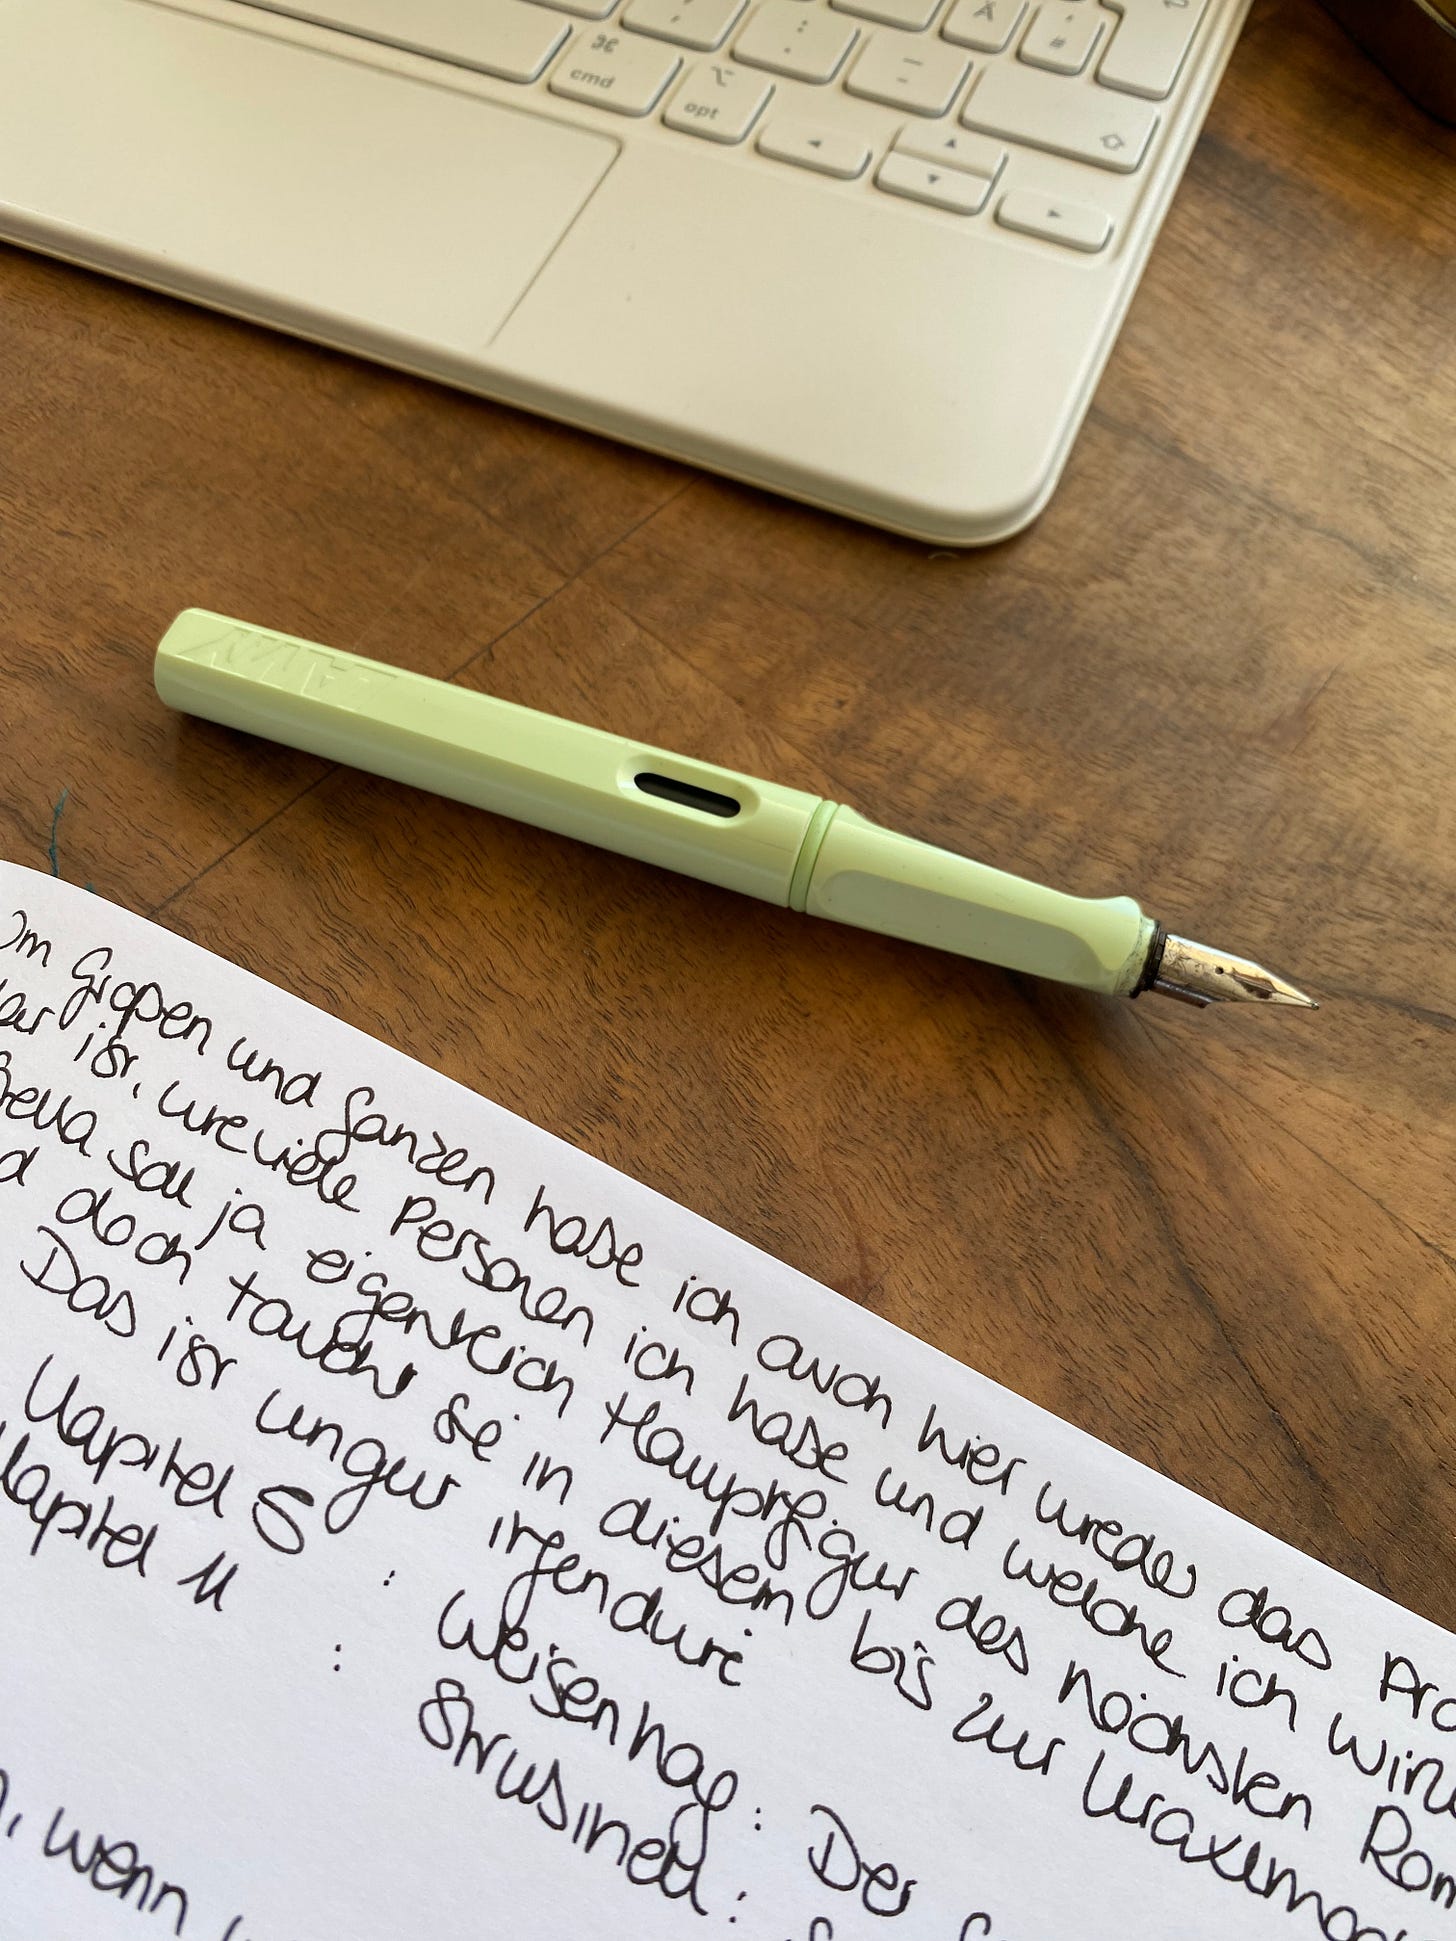 ⌘
cmd
⌥
opt
Ä
#
LAMY
Im Großen und Ganzen habe ich auch hier wieder das
ist, wie viele Personen ich habe und welche ich
soll ja eigentlich Hauptfigur des nächsten
doch taucht sie in diesem bis zur
Das ist ungut irgendwie
Kapitel 5 : Weisenhag: Der
Kapitel 11 :
wenn